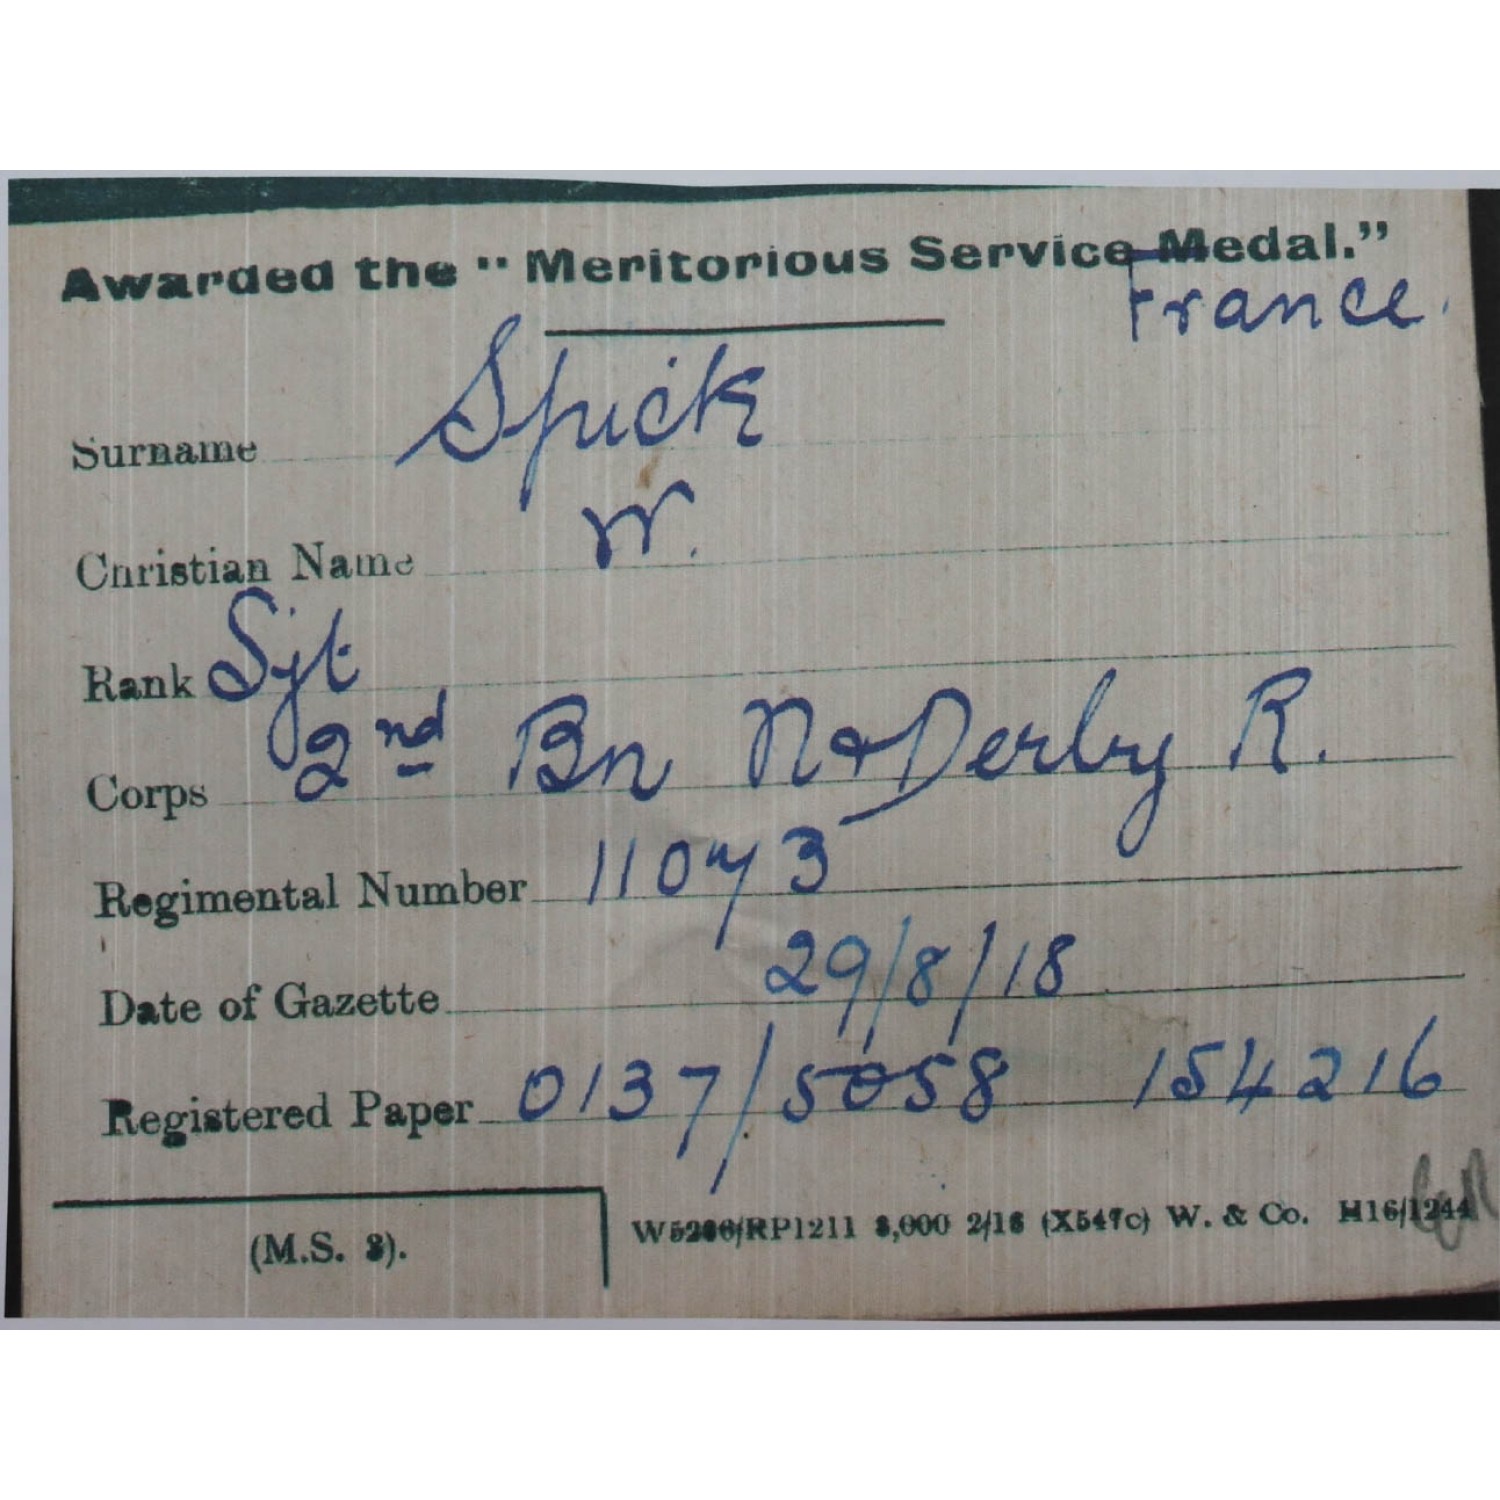 Awarded the "Meritorious Service Medal."
France.
Surname Spick
Christian Name W.
Rank Sjt
Corps 2nd Bn N & Derby R.
Regimental Number 11073
Date of Gazette 29/8/18
Registered Paper 0137/5058 154216
(M.S. 3). W5206/RP1211 8,000 2/16 (X547c) W. & Co. H16/1244